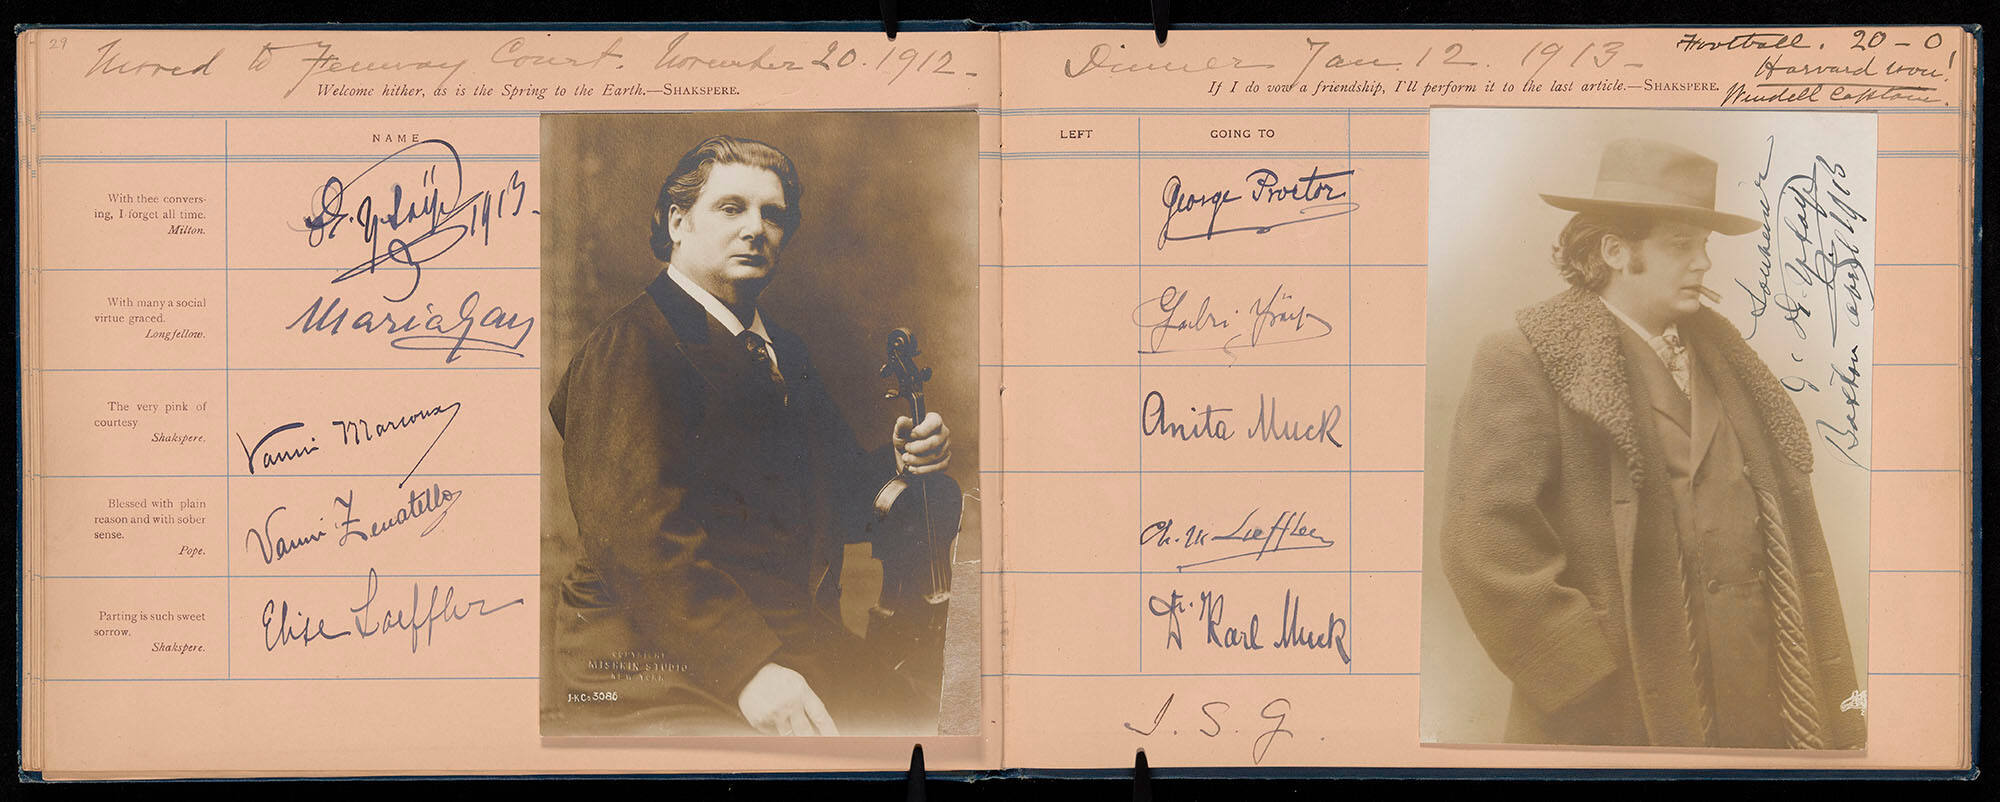 29
Moved to Fenway Court. November 20. 1912-
Welcome hither, as is the Spring to the Earth.—SHAKSPERE.
NAME
With thee convers-
ing, I forget all time.
Milton.
1913-
With many a social
virtue graced.
Longfellow.
Maria Gay
The very pink of
courtesy
Shakspere.
Vanni Marcoux
Blessed with plain
reason and with sober
sense.
Pope.
Vanni Zenatello
Parting is such sweet
sorrow.
Shakspere.
Elise Loeffler
COPYRIGHT
MISHKIN STUDIO
NEW YORK
J-K Co 3086
Dinner Jan. 12. 1913-
Football. 20-0
Harvard won!
Wendell Captain.
If I do vow a friendship, I'll perform it to the last article.—SHAKSPERE.
LEFT
GOING TO
George Proctor
Anita Muck
Ch. M Loeffler
Dr. Karl Muck
I. S. G.
Souvenir
Boston 1913